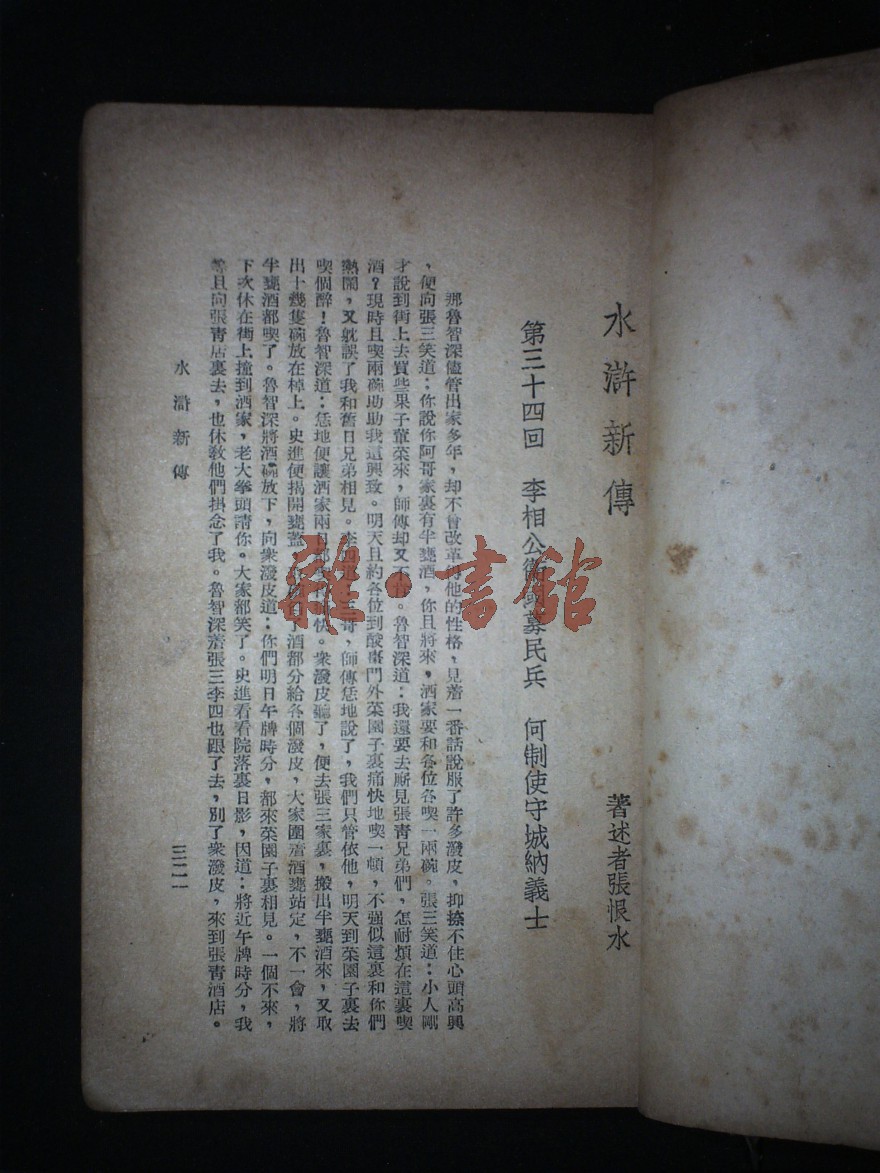 水滸新傳
著述者張恨水
第三十四回 李相公衛 募民兵 何制使守城納義士
那魯智深儘管出家多年，却不曾改革 他的性格，見着一番話說服了許多潑皮，抑捺不住心頭高興
，便向張三笑道：你說你阿哥家裏有半甕酒，你且將來，酒家要和各位各喫一兩碗。張三笑道：小人剛
才說到街上去買些果子葷菜來，師傅却又不 。魯智深道：我還要去廝見張靑兄弟們，怎耐煩在這裏喫
酒？現時且喫兩碗助助我這興致。明天且約各位到酸棗門外菜園子裏痛快地喫一頓，不强似這裏和你們
熱鬧，又躭誤了我和舊日兄弟相見。李四道： 哥，師傅恁地說了，我們只管依他，明天到菜園子裏去
喫個醉！魯智深道：恁地便讓洒家兩日都 快。衆潑皮聽了，便去張三家裏，搬出半甕酒來，又取
出十幾隻碗放在棹上。史進便揭開甕蓋， 酒都分給各個潑皮，大家圍着酒甕站定，不一會，將
半甕酒都喫了。魯智深將酒碗放下，向衆潑皮道：你們明日午牌時分，都來菜園子裏相見。一個不來，
下次休在街上撞到洒家，老大拳頭請你。大家都笑了。史進看看院落裏日影，因道：將近午牌時分，我
等且向張靑店裏去，也休敎他們掛念了我。魯智深 張三李四也跟了去，別了衆潑皮，來到張靑酒店。
水滸新傳
三二一
雜·書館